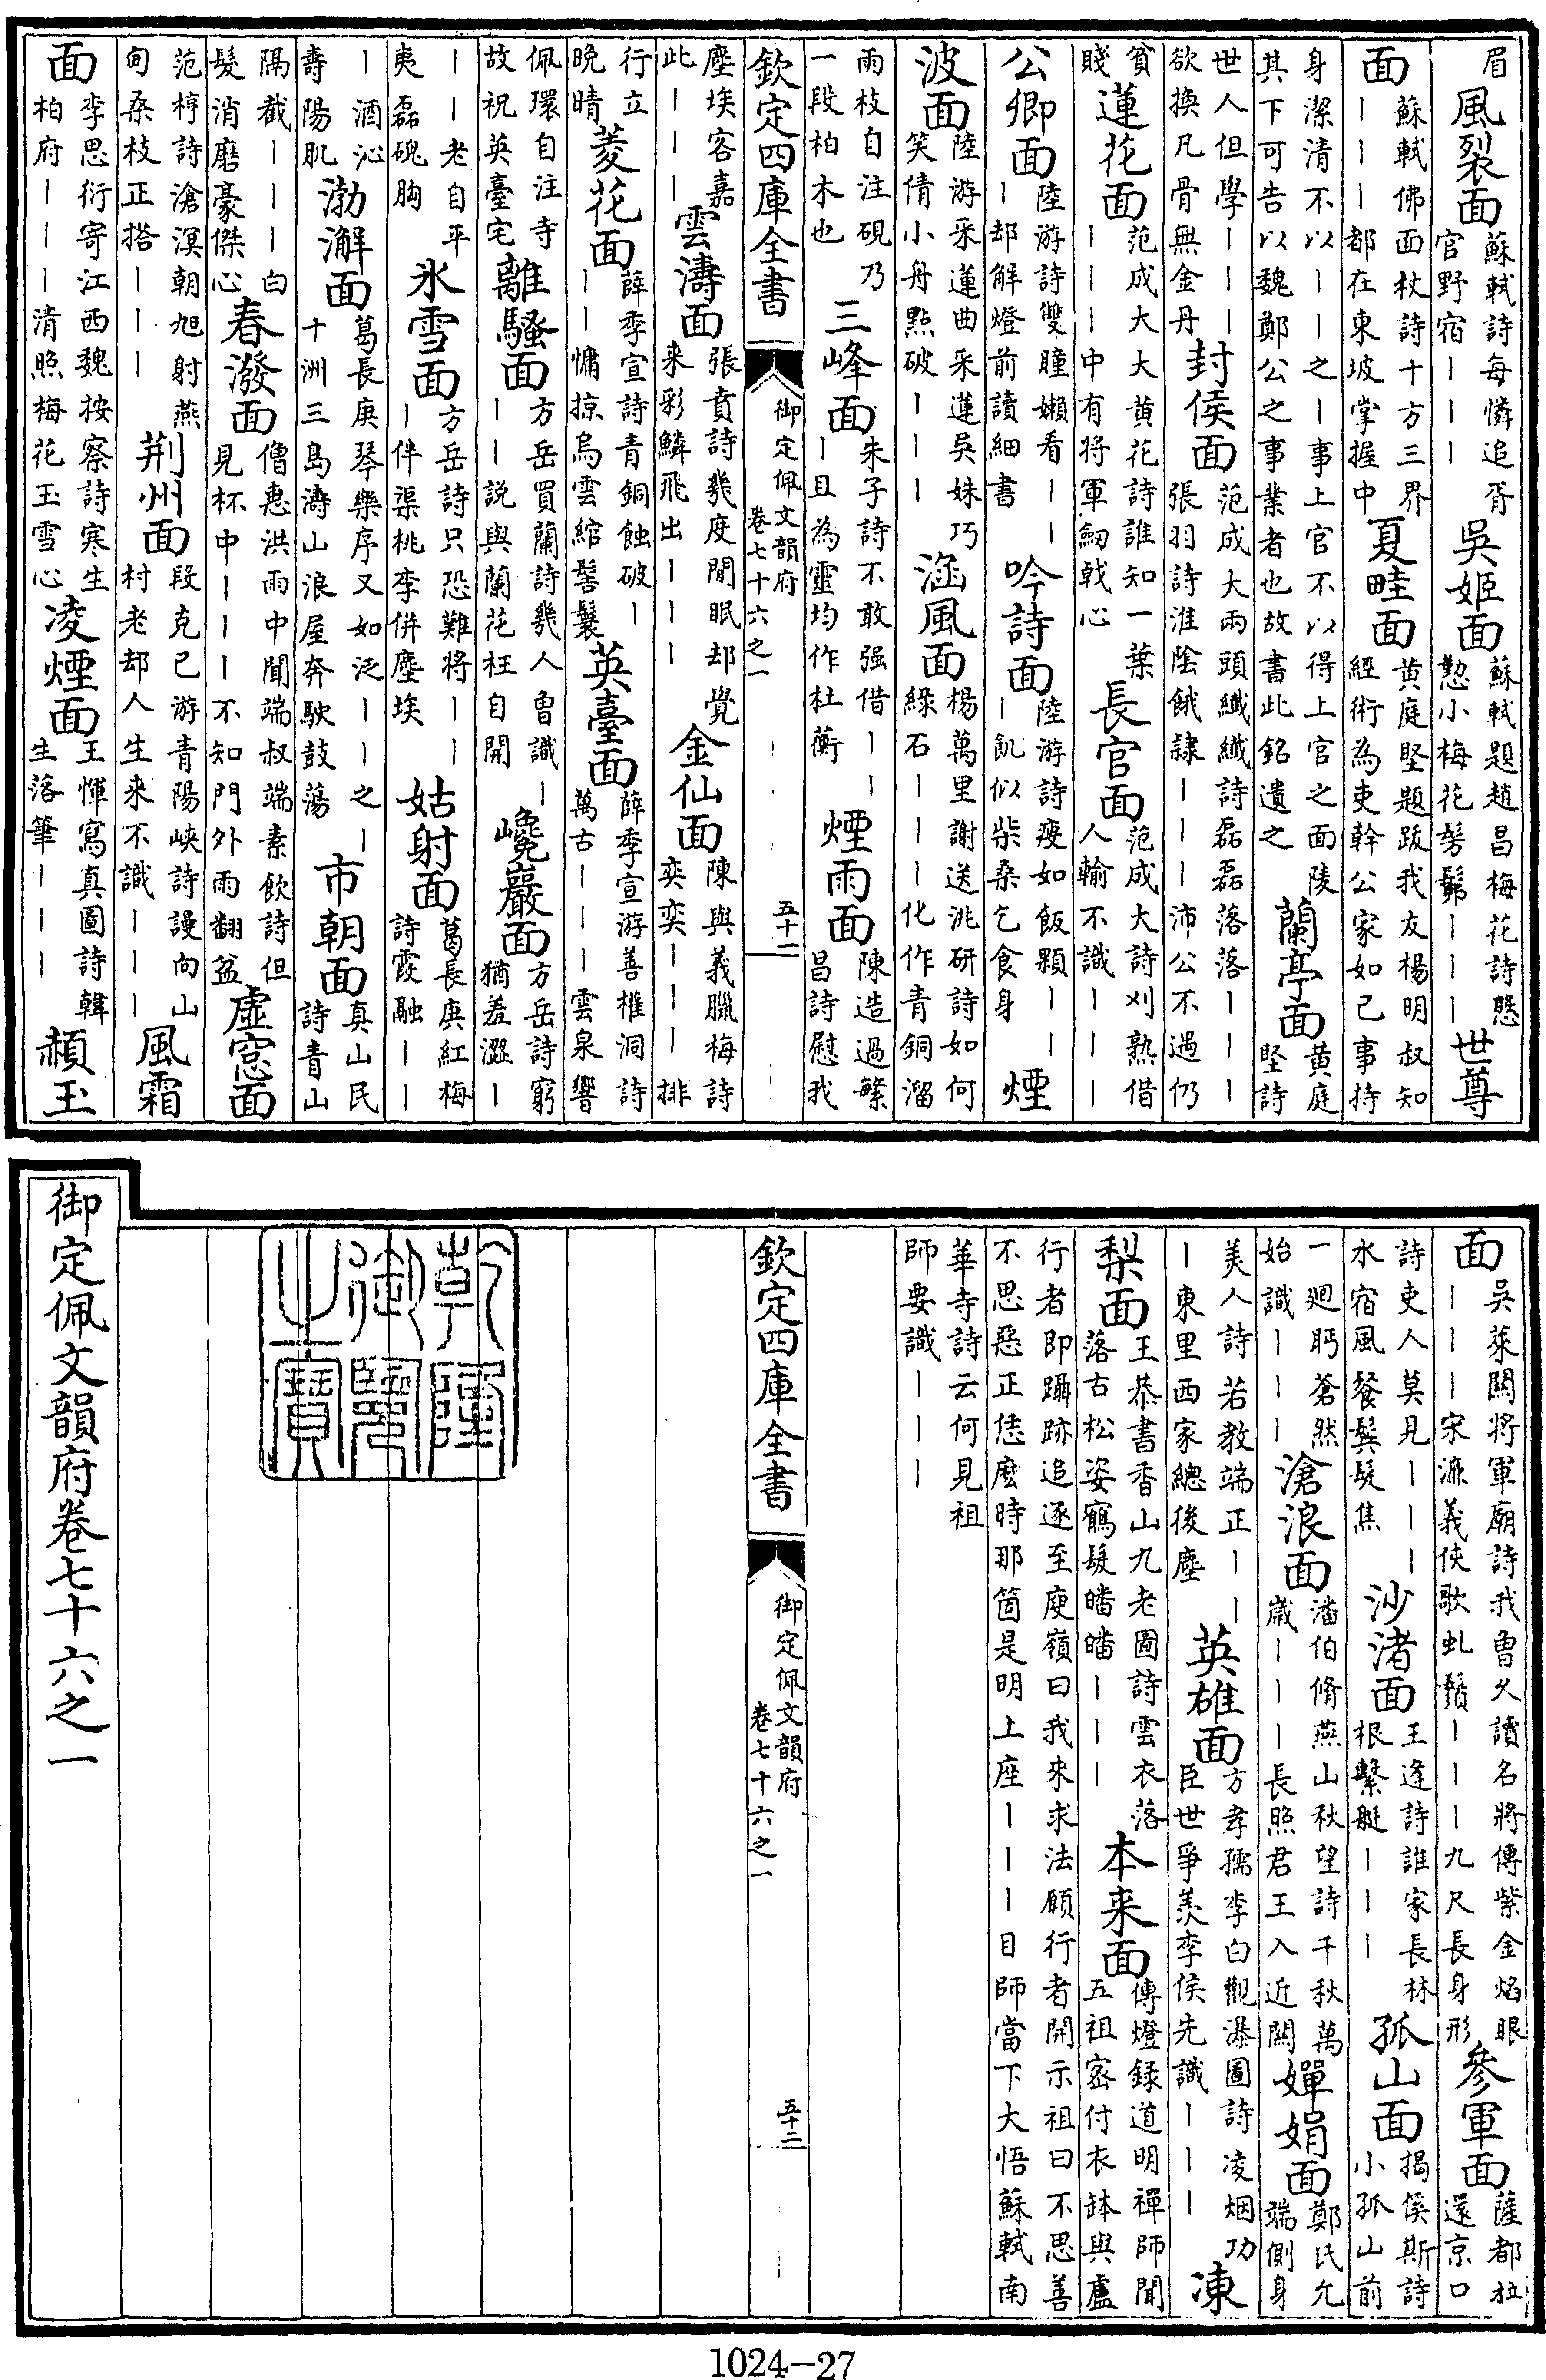 眉風裂面蘇軾詩每憐追胥官野宿丨丨丨吳姬面蘇軾題趙昌梅花詩慇懃小梅花髣髴丨丨丨世尊
面蘇軾佛面杖詩十方三界丨丨丨都在東坡掌握中夏畦面黃庭堅題跋我友楊明叔知經術為吏幹公家如己事持
身潔清不以丨丨之丨事上官不以得上官之面陵其下可告以魏鄭公之事業者也故書此銘遺之蘭亭面黃庭堅詩
世人但學丨丨丨丨欲換凡骨無金丹封侯面范成大雨頭纖纖詩磊磊落落丨丨丨張羽詩淮陰餓隸丨丨丨沛公不過仍
貧賤蓮花面范成大大黃花詩誰知一葉丨丨丨中有將軍劒戟心長官面范成大詩刈熟借人輸不識丨丨丨
公卿面陸游詩雙瞳嬾看丨丨丨却解燈前讀細書吟詩面陸游詩瘦如飯顆丨丨丨飢似柴桑乞食身煙
波面陸游采蓮曲采蓮吳姝巧笑倩小舟㸃破丨丨丨涵風面楊萬里謝送洮研詩如何綠石丨丨丨化作青銅溜
雨枝自注硯乃一段柏木也三峰面朱子詩不敢强借丨丨丨且為靈均作杜蘅煙雨面陳造過繁昌詩慰我
欽定四庫全書 御定佩文韻府 卷七十六之一 五十一
塵埃客嘉此丨丨丨雲濤面張賁詩幾度閒眠却覺來彩鱗飛出丨丨丨金仙面陳與義臘梅詩奕奕丨丨丨排
行立晚晴菱花面薛季宣詩青銅蝕破丨丨丨慵掠烏雲綰髻鬟英臺面薛季宣游善權洞詩萬古丨丨丨雲泉響
佩環自注寺故祝英臺宅離騷面方岳買蘭詩幾人曾識丨丨丨說與蘭花枉自開巉巖面方岳詩窮猶羞澀丨
丨丨老自平夷磊磈胸氷雪面方岳詩只恐難將丨丨丨伴渠桃李併塵埃姑射面葛長庚紅梅詩霞融丨丨
丨酒沁壽陽肌渤澥面葛長庚琴樂序又如泛丨丨之丨十洲三島濤山浪屋奔駛鼓蕩市朝面真山民詩青山
隔截丨丨丨白髮消磨豪傑心春潑面僧惠洪雨中聞端叔端素飲詩但見杯中丨丨丨不知門外雨翻盆虛窓面
范梈詩滄溟朝旭射燕甸桑枝正搭丨丨丨荆州面段克已游青陽峽詩謾向山村老却人生來不識丨丨丨風霜
面李思衍寄江西魏按察詩寒生柏府丨丨丨清照梅花玉雪心凌煙面王惲寫真圖詩韓生落筆丨丨丨頳玉
面吳萊關將軍廟詩我曾久讀名將傳紫金焰眼丨丨丨宋濂義俠歌虬鬚丨丨丨九尺長身形參軍面薩都拉還京口
詩吏人莫見丨丨丨水宿風餐鬢髮焦沙渚面王逢詩誰家長林根繫艇丨丨丨孤山面揭傒斯詩小孤山前
一廻眄蒼然始識丨丨丨滄浪面潘伯脩燕山秋望詩千秋萬歲丨丨丨長照君王入近關嬋娟面鄭氏允端側身
美人詩若教端正丨丨丨東里西家總後塵英雄面方孝孺李白觀瀑圖詩凌烟功臣世爭羨李侯先識丨丨丨凍
梨面王恭書香山九老圖詩雲衣落落古松姿鶴髮皤皤丨丨丨本來面傳燈錄道明禪師聞五祖密付衣鉢與盧
行者即躡跡追逐至庾嶺曰我來求法願行者開示祖曰不思善不思惡正恁麽時那箇是明上座丨丨丨目師當下大悟蘇軾南
華寺詩云何見祖師要識丨丨丨
欽定四庫全書 御定佩文韻府 卷七十六之一 五十二
乾隆御覽之寶
御定佩文韻府卷七十六之一
1024-27